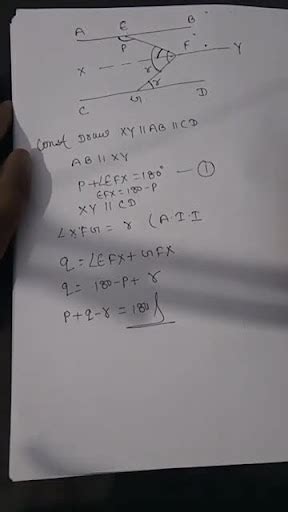 A E B
P
F Y
X
r
r
C G D
Const Draw XY || AB || CD
AB || XY
P+∠EFX=180° — ①
EFX=180-P
XY || CD
∠XFG = r (A.I.I
q = ∠EFX + GFX
q = 180-P + r
P+q-r = 180